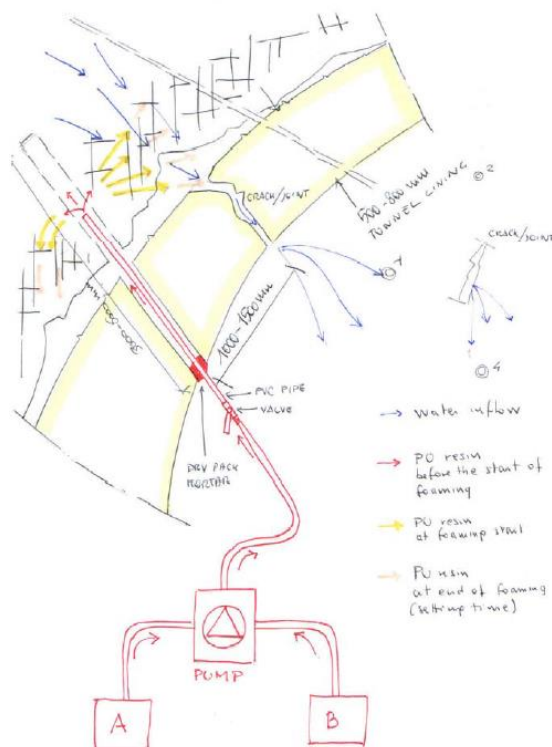 CRACK/JOINT
500-800 mm
TUNNEL LINING
2
1
CRACK/JOINT
4
1000-1500 mm
PVC PIPE
VALVE
DRY PACK
MORTAR
Water inflow
PU resin
before the start of
foaming
PU resin
at foaming start
PU resin
at end of foaming
(setting time)
PUMP
A
B